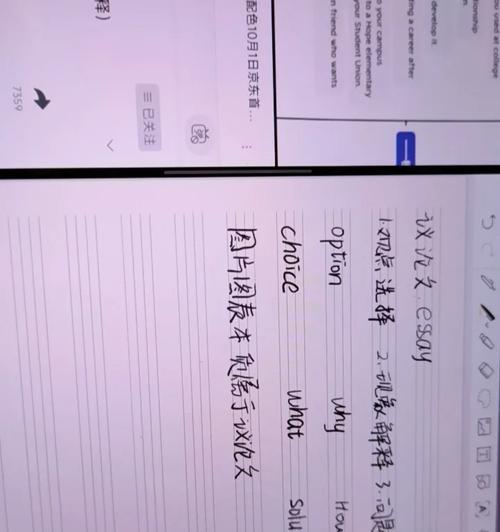 ou used at college
tionship
n.
develop it.
ting a career after
o your campus
to a Hope elementary
your Student Union.
n friend who wants
配色10月1日京东首...
已关注
释)
7359
议论文 essay
1.观点选择 2.现象解释 3.问
option why How
choice what solu
图片图表本质属于议论文